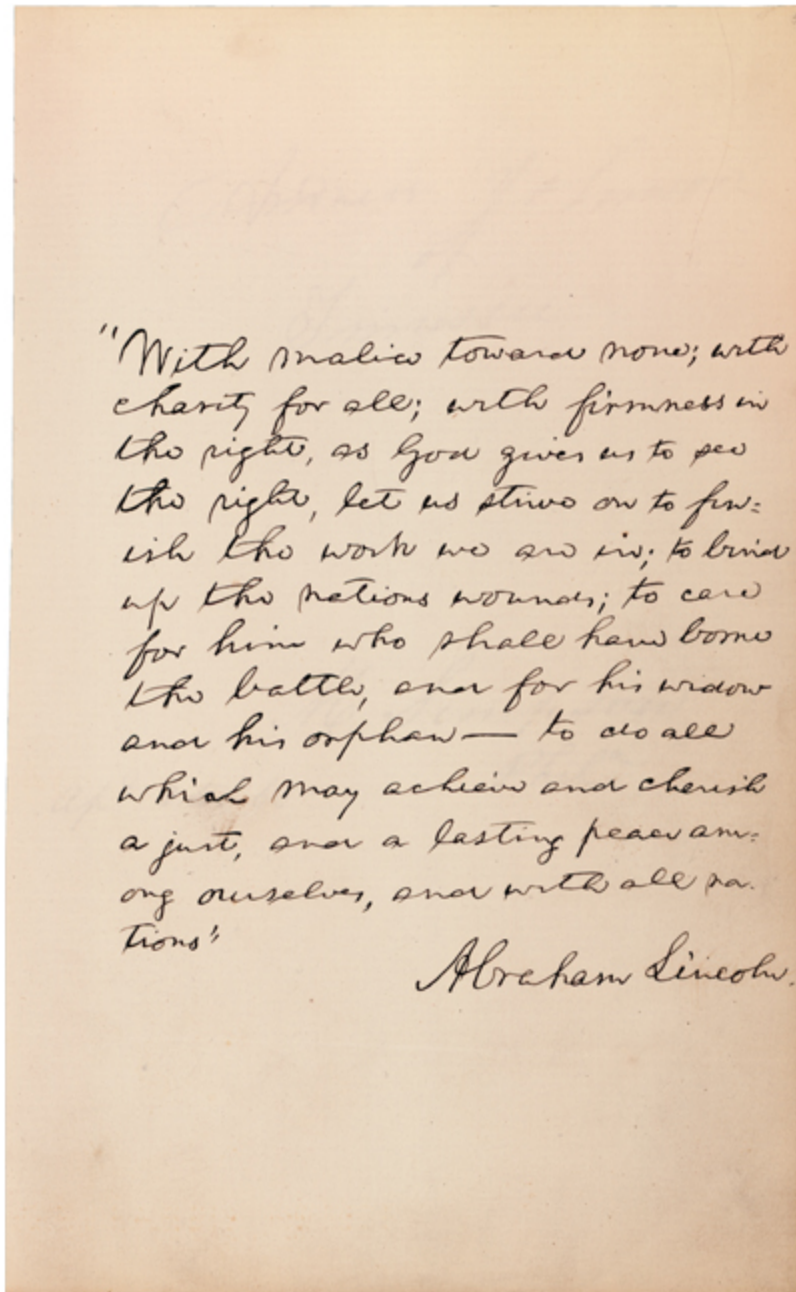 "With malice toward none; with
charity for all; with firmness in
the right, as God gives us to see
the right, let us strive on to fin=
ish the work we are in; to bind
up the nations wounds; to care
for him who shall have borne
the battle, and for his widow
and his orphan — to do all
which may achieve and cherish
a just, and a lasting peace am=
ong ourselves, and with all na-
tions"
Abraham Lincoln.